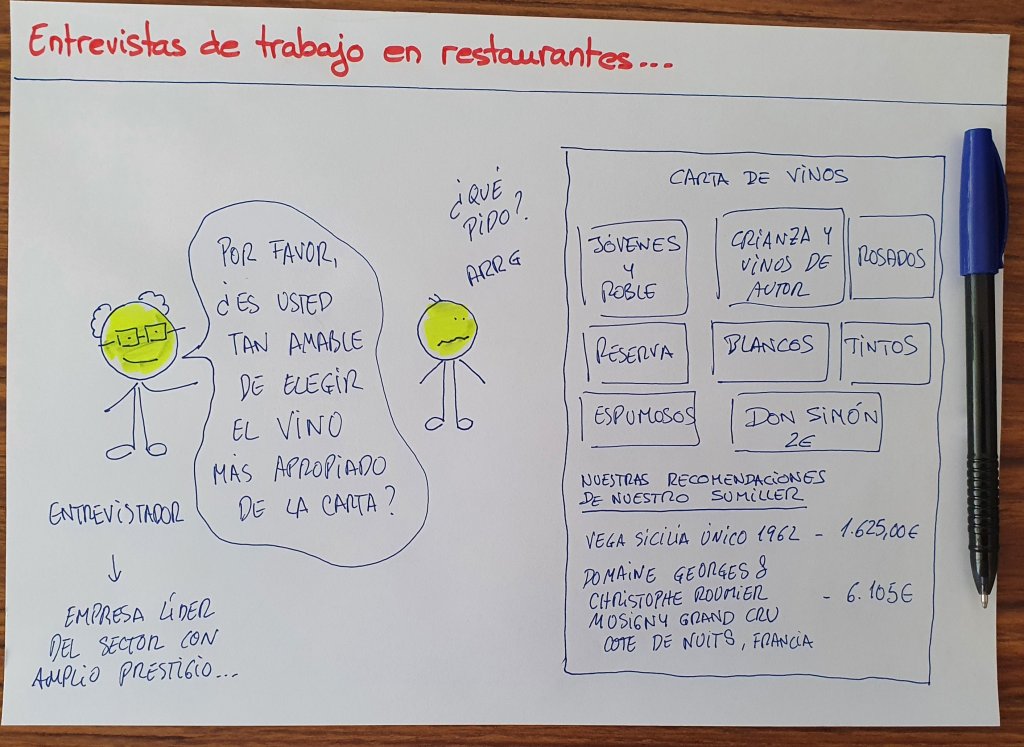 Entrevistas de trabajo en restaurantes...
POR FAVOR,
¿ES USTED
TAN AMABLE
DE ELEGIR
EL VINO
MÁS APROPIADO
DE LA CARTA?
ENTREVISTADOR
EMPRESA LÍDER
DEL SECTOR CON
AMPLIO PRESTIGIO...
¿QUÉ
PIDO?
ARRG
CARTA DE VINOS
JÓVENES
Y
ROBLE
CRIANZA Y
VINOS DE
AUTOR
ROSADOS
RESERVA
BLANCOS
TINTOS
ESPUMOSOS
DON SIMÓN
2€
NUESTRAS RECOMENDACIONES
DE NUESTRO SUMILLER
VEGA SICILIA ÚNICO 1962 - 1.625,00€
DOMAINE GEORGES &
CHRISTOPHE ROUMIER - 6.105€
MUSIGNY GRAND CRU
COTE DE NUITS, FRANCIA